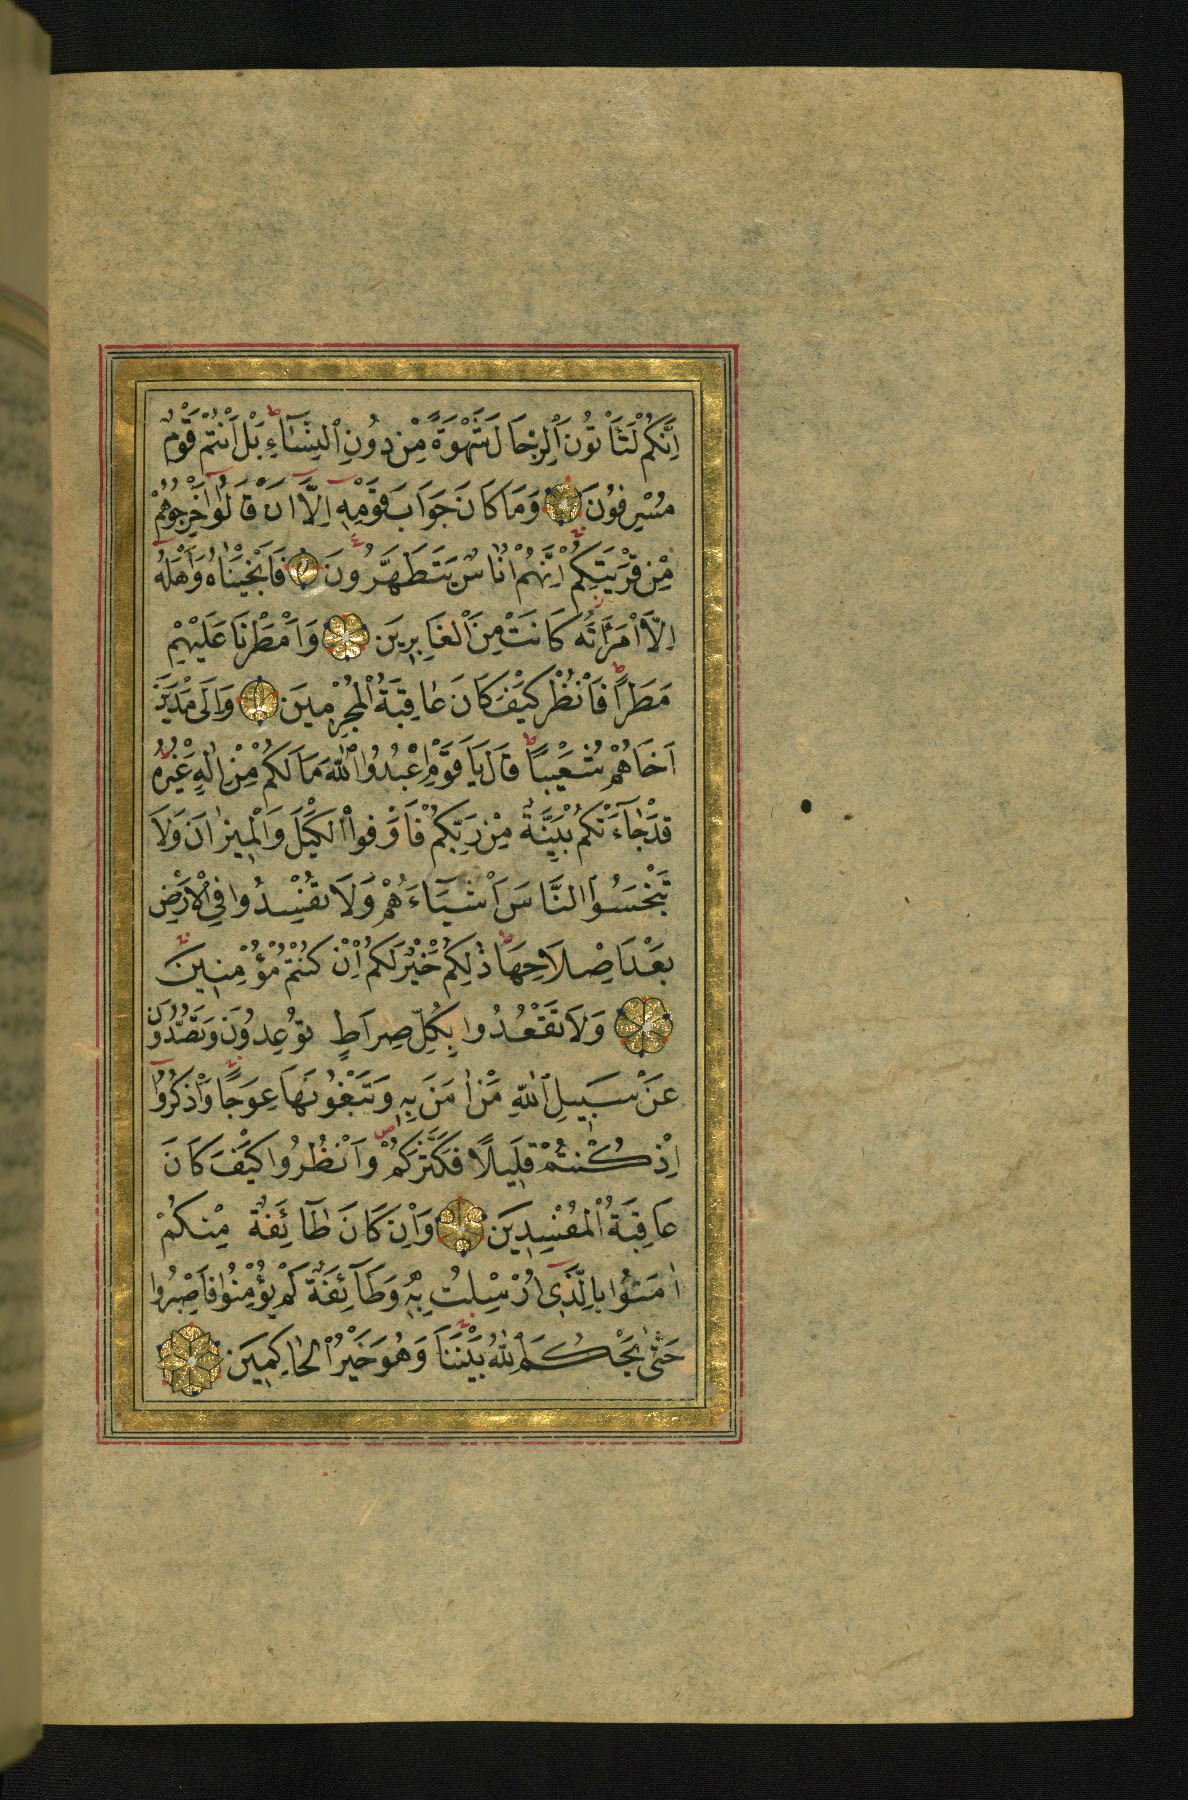 اِنَّكُمْ لَتَأْتُونَ الرِّجَالَ شَهْوَةً مِنْ دُونِ النِّسَٓاءِ بَلْ اَنْتُمْ قَوْمٌ
مُسْرِفُونَ وَمَا كَانَ جَوَابَ قَوْمِهٖٓ اِلَّٓا اَنْ قَالُٓوا اَخْرِجُوهُمْ
مِنْ قَرْيَتِكُمْ اِنَّهُمْ اُنَاسٌ يَتَطَهَّرُونَ فَاَنْجَيْنَاهُ وَاَهْلَهُٓ
اِلَّا امْرَاَتَهُ كَانَتْ مِنَ الْغَابِرِينَ وَاَمْطَرْنَا عَلَيْهِمْ
مَطَرًا فَانْظُرْ كَيْفَ كَانَ عَاقِبَةُ الْمُجْرِمِينَ وَاِلَى مَدْيَنَ
اَخَاهُمْ شُعَيْبًا قَالَ يَا قَوْمِ اعْبُدُوا اللّٰهَ مَا لَكُمْ مِنْ اِلٰهٍ غَيْرُهُ
قَدْ جَٓاءَتْكُمْ بَيِّنَةٌ مِنْ رَبِّكُمْ فَاَوْفُوا الْكَيْلَ وَالْمِيزَانَ وَلَا
تَبْخَسُوا النَّاسَ اَشْيَٓاءَهُمْ وَلَا تُفْسِدُوا فِي الْاَرْضِ
بَعْدَ اِصْلَاحِهَا ذٰلِكُمْ خَيْرٌ لَكُمْ اِنْ كُنْتُمْ مُؤْمِنِينَ
وَلَا تَقْعُدُوا بِكُلِّ صِرَاطٍ تُوعِدُونَ وَتَصُدُّونَ
عَنْ سَبِيلِ اللّٰهِ مَنْ اٰمَنَ بِهٖ وَتَبْغُونَهَا عِوَجًا وَاذْكُرُٓوا
اِذْ كُنْتُمْ قَلِيلًا فَكَثَّرَكُمْ وَانْظُرُوا كَيْفَ كَانَ
عَاقِبَةُ الْمُفْسِدِينَ وَاِنْ كَانَ طَٓائِفَةٌ مِنْكُمْ
اٰمَنُوا بِالَّذِٓي اُرْسِلْتُ بِهٖ وَطَٓائِفَةٌ لَمْ يُؤْمِنُوا فَاصْبِرُوا
حَتّٰى يَحْكُمَ اللّٰهُ بَيْنَنَا وَهُوَ خَيْرُ الْحَاكِمِينَ